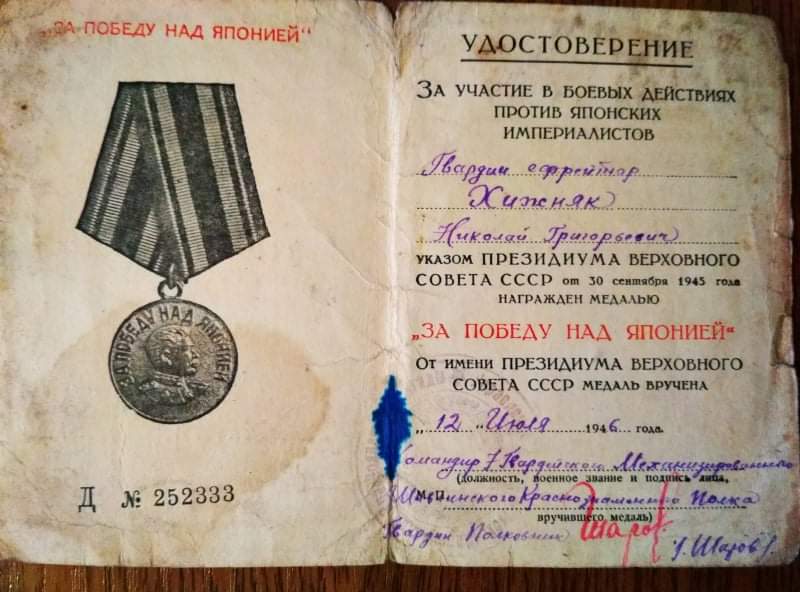 „ЗА ПОБЕДУ НАД ЯПОНИЕЙ“
ЗА ПОБЕДУ НАД ЯПОНИЕЙ
Д № 252333
УДОСТОВЕРЕНИЕ
ЗА УЧАСТИЕ В БОЕВЫХ ДЕЙСТВИЯХ
ПРОТИВ ЯПОНСКИХ
ИМПЕРИАЛИСТОВ
Гвардии ефрейтор
Хижняк
Николай Григорьевич
УКАЗОМ ПРЕЗИДИУМА ВЕРХОВНОГО
СОВЕТА СССР от 30 сентября 1945 года
НАГРАЖДЕН МЕДАЛЬЮ
„ЗА ПОБЕДУ НАД ЯПОНИЕЙ“
ОТ ИМЕНИ ПРЕЗИДИУМА ВЕРХОВНОГО
СОВЕТА СССР МЕДАЛЬ ВРУЧЕНА
„12 Июля 1946 года.
Командир 7 Гвардейского Механизированного
(должность, военное звание и подпись лица,
М.П. Краснознаменного Полка
вручившего медаль)
Гвардии Полковник Шаров /. Шаров /.